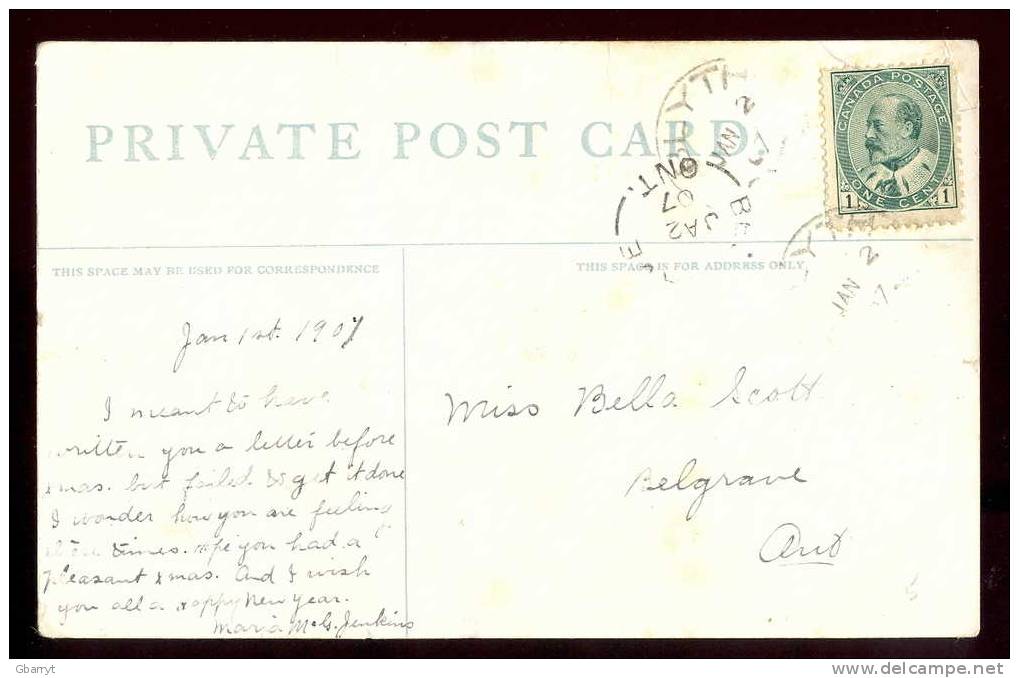 PRIVATE POST CARD
CANADA POSTAGE
ONE CENT
1 1
YTH
JAN 2
07
ONT.
JA 2
07
YTH
JAN 2
7
THIS SPACE MAY BE USED FOR CORRESPONDENCE
THIS SPACE IS FOR ADDRESS ONLY
Jan 1st. 1907
I meant to have
written you a letter before
xmas. but failed to get it done
I wonder how you are feeling
times. hope you had a
pleasant xmas. And I wish
you all a Happy New Year.
McG. Jenkins
Miss Bella Scott
Belgrave
Ont
Gbarryt
delcampe.net